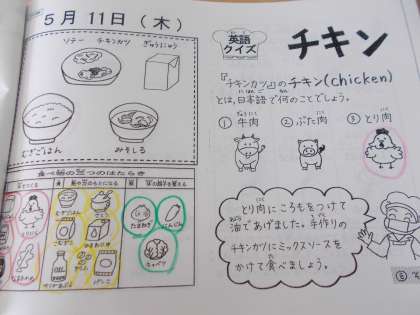 5月11日(木)
ソテー チキンカツ ぎゅうにゅう
むぎごはん みそしる
食べ物の三つのはたらき
むぎごはん
たまねぎ
にんじん
キャベツ
英語
クイズ
チキン
『チキンカツ』のチキン(chicken)
とは、日本語で何のことでしょう。
① 牛肉 ② ぶた肉 ③ とり肉
とり肉にころもをつけて
油であげました。手作りの
チキンカツにミックスソースを
かけて食べましょう。